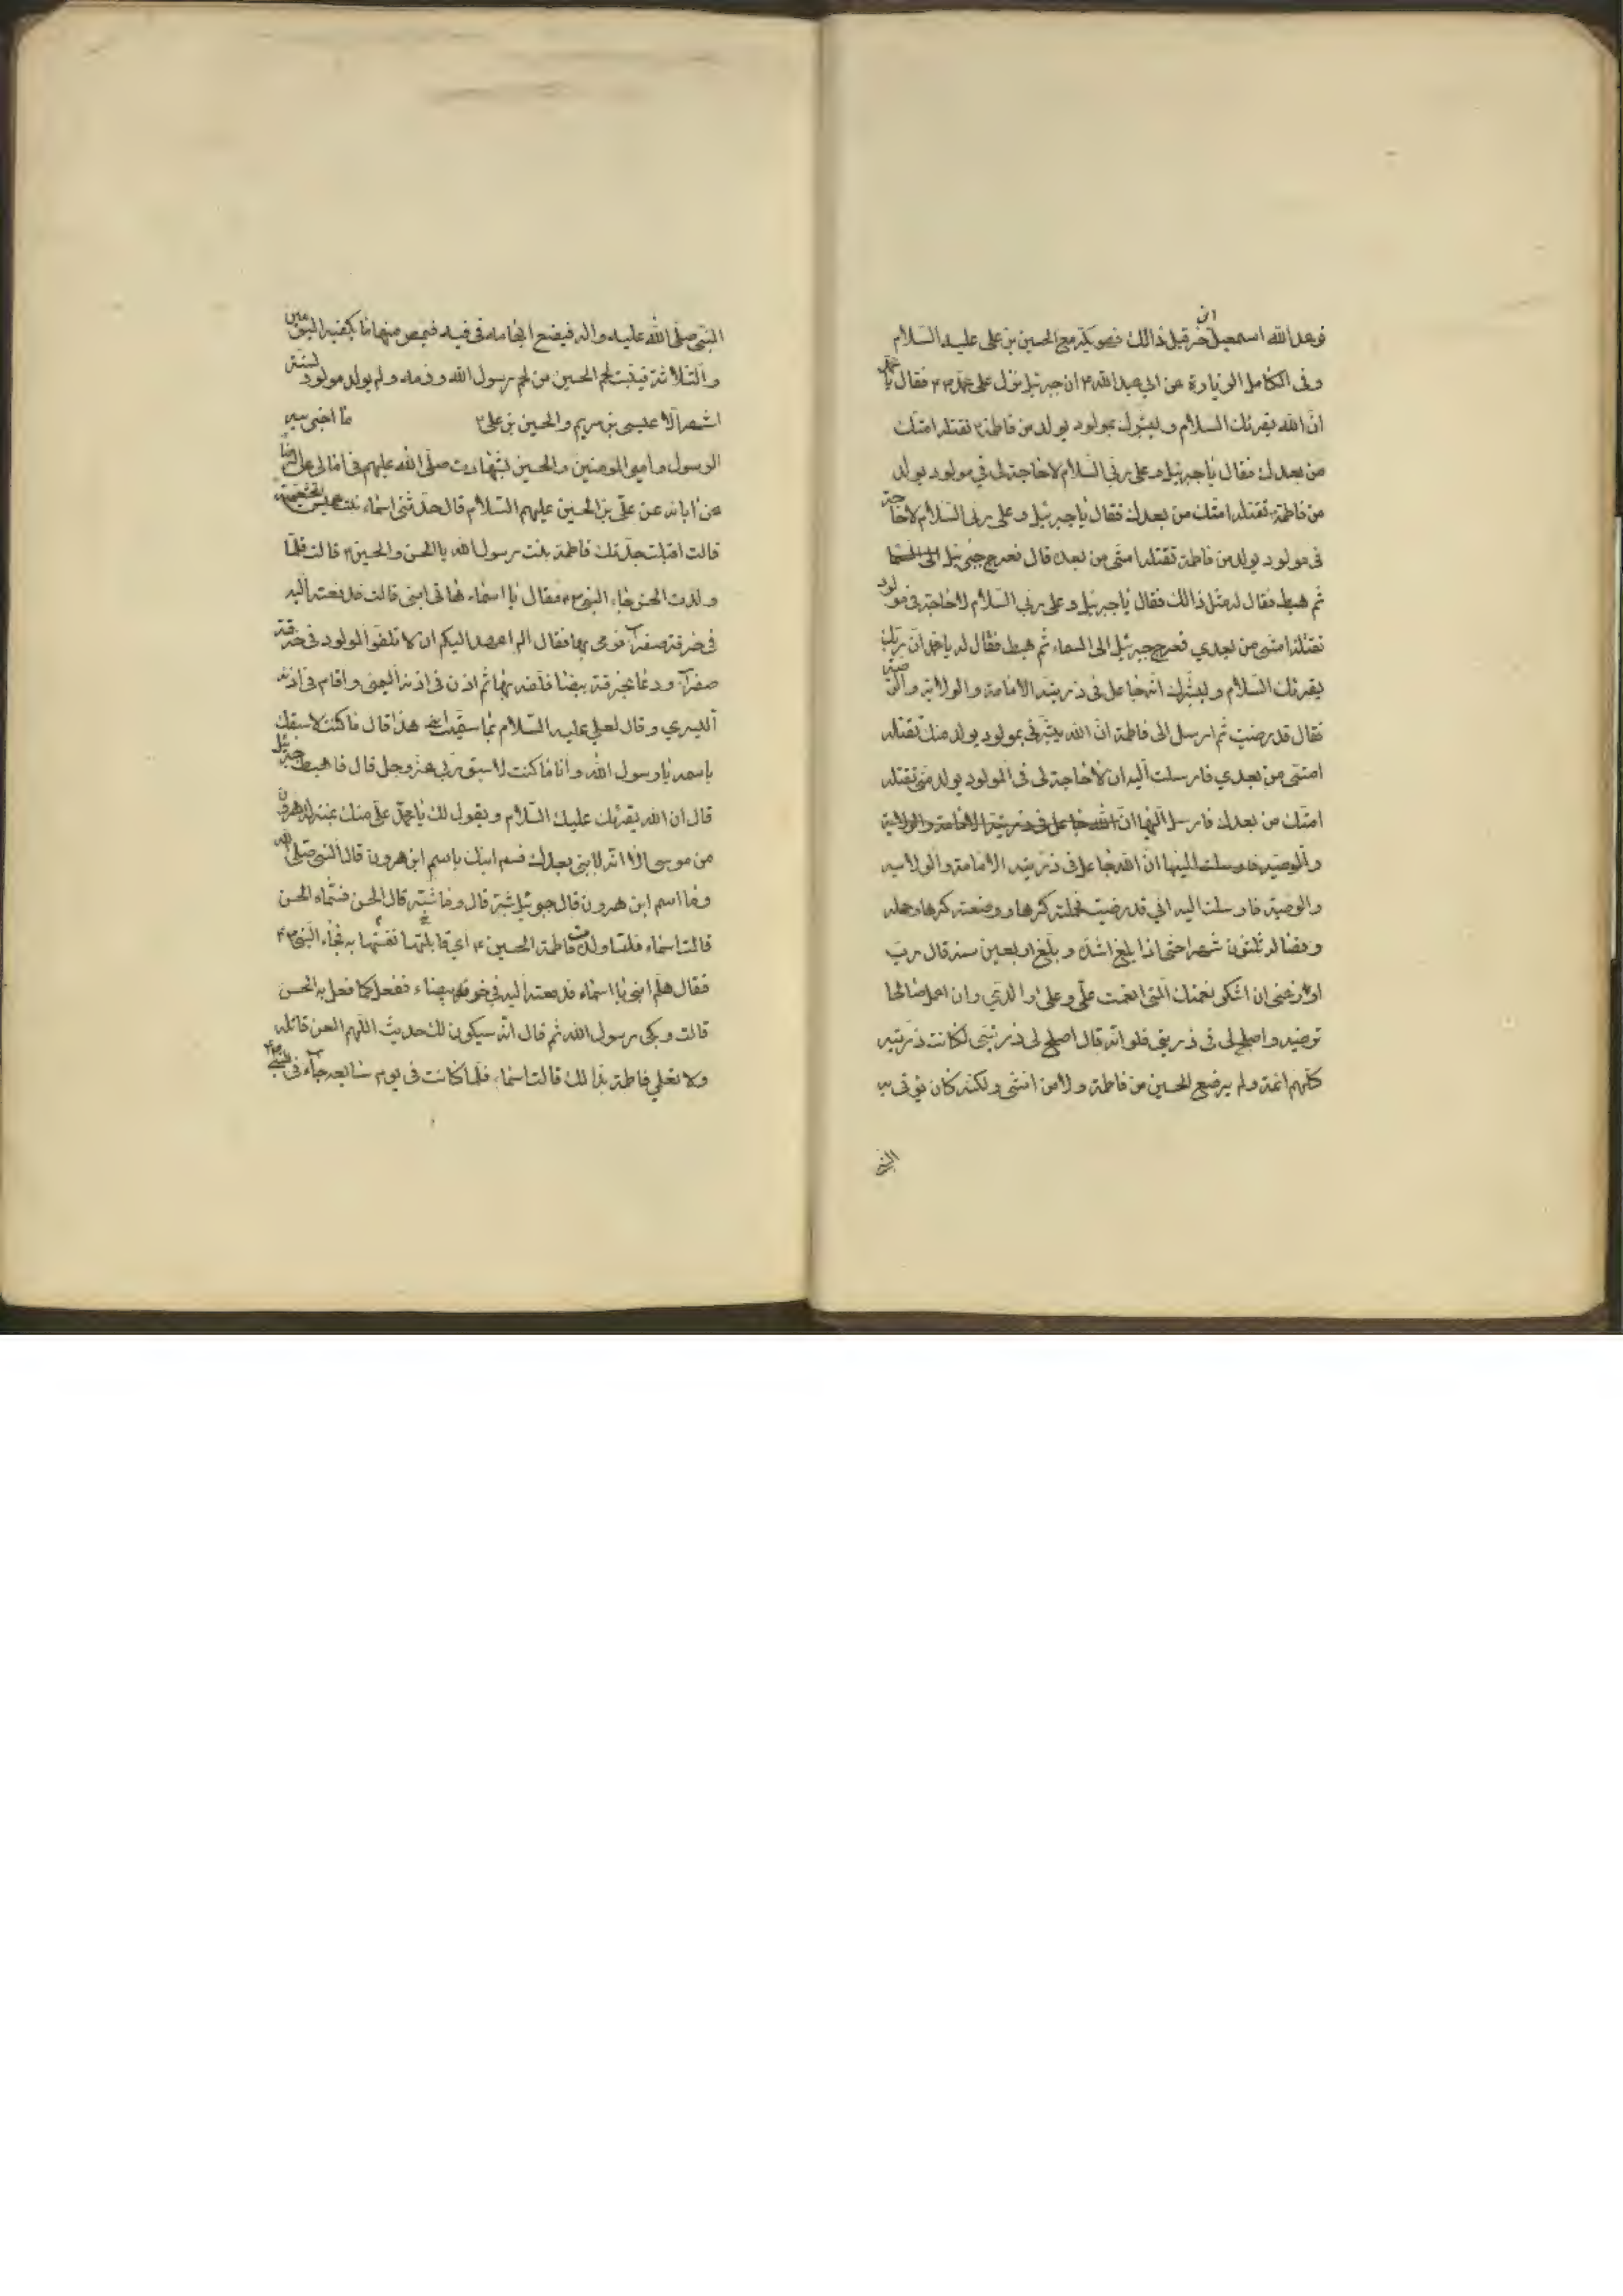 فوعد الله اسمعيل بن حزقيل ذالك فهو يكر مع الحسين بن على عليه السلام
وفى الكامل الزيارة عن ابي عبد الله ع ان جبرئيل نزل على محمد ص فقال يا محمد
ان الله يقرئك السلام و يبشرك بمولود يولد من فاطمة تقتله امتك
من بعدك فقال يا جبرئيل و على ربي السلام لا حاجة لى في مولود يولد
من فاطمة تقتله امتك من بعدك فقال يا جبرئيل و على ربي السلام لا حاجة
فى مولود يولد من فاطمة تقتله امتى من بعده قال فعرج جبرئيل الى السما
ثم هبط فقال له مثل ذالك فقال يا جبرئيل و على ربي السلام لا حاجة فى مولود
تقتله امتى من بعدي فعرج جبرئيل الى السماء ثم هبط فقال له يا محمد ان ربك
يقرئك السلام و يبشرك انه جاعل فى ذريته الامامة و الولاية و الوصية
فقال قد رضيت ثم ارسل الى فاطمة ان الله يبشرنى بمولود يولد منك تقتله
امتى من بعدي فارسلت اليه ان لا حاجة لى فى المولود يولد منى تقتله
امتك من بعدك فارسل اليها ان الله جاعل فى ذريته الامامة والولاية
والوصية فارسلت اليها ان الله جاعل فى ذريته الامامة و الولاية
والوصية فارسلت اليه اني قد رضيت فحملته كرها و وضعته كرها وحمله
وفصاله ثلثون شهرا حتى اذا بلغ اشده و بلغ اربعين سنة قال رب
اوزعنى ان اشكر نعمتك التى انعمت على و على والدي وان اعمل صالحا
ترضيه و اصلح لى فى ذريتى فلو انه قال اصلح لى ذريتى لكانت ذريته
كلهم ائمة ولم يرضع الحسين من فاطمة ولا من انثى ولكنه كان يؤتى به
النبي
النبى صلى الله عليه واله فيضع ابهامه فى فيه فيمص منها ما يكفيه اليومين
والثلاثة فينبت لحم الحسين من لحم رسول الله و دمه ولم يولد مولود لستة
اشهر الا عيسى بن مريم والحسين بن على ع ما اخبر به
الرسول و امير المومنين والحسين بشهادت صلى الله عليهم فى امالى عن الرضا
عن ابائه عن على بن الحسين عليهم السلام قال حدثنى اسماء بنت عميس الخثعمية
قالت اقبلت جدتك فاطمة بنت رسول الله بالحسن والحسين ع قالت فلما
ولدت الحسن جاء النبي ص فقال يا اسماء هاتى ابنى قالت فدفعته اليه
فى خرقة صفرآء فرمى بها فقال الم اعهد اليكم ان لا تلفوا المولود فى خرقة
صفرآء و دعا بخرقة بيضا فلفه بها ثم اذن فى اذنه اليمنى و اقام فى اذنه
اليسري و قال لعلي عليه السلام بما سميت ابنى هذا قال ما كنت لاسبقك
باسمه يا رسول الله و انا ما كنت لاسبق ربي عز وجل قال فاهبط جبرئيل
قال ان الله يقرئك عليك السلام ويقول لك يا محمد على منك بمنزلة هرون
من موسى الا انه لا نبى بعدك فسم ابنك باسم ابن هرون قال النبى صلى الله
وما اسم ابن هرون قال جبرئيل شبر قال وما شبر قال الحسن فسماه الحسن
قالت اسماء فلما ولدت فاطمة الحسين ع اي قابلتها نفستها به فجاء النبى ص
فقال هلم ابنى يا اسماء فدفعته اليه في خرقة بيضاء ففعل كما فعل بالحسن
قالت و بكى رسول الله ثم قال انه سيكون لك حديث اللهم العن قاتله
ولا تعلمي فاطمة بذالك قالت اسماء فلما كانت فى يوم سابعه جاء نى النبي